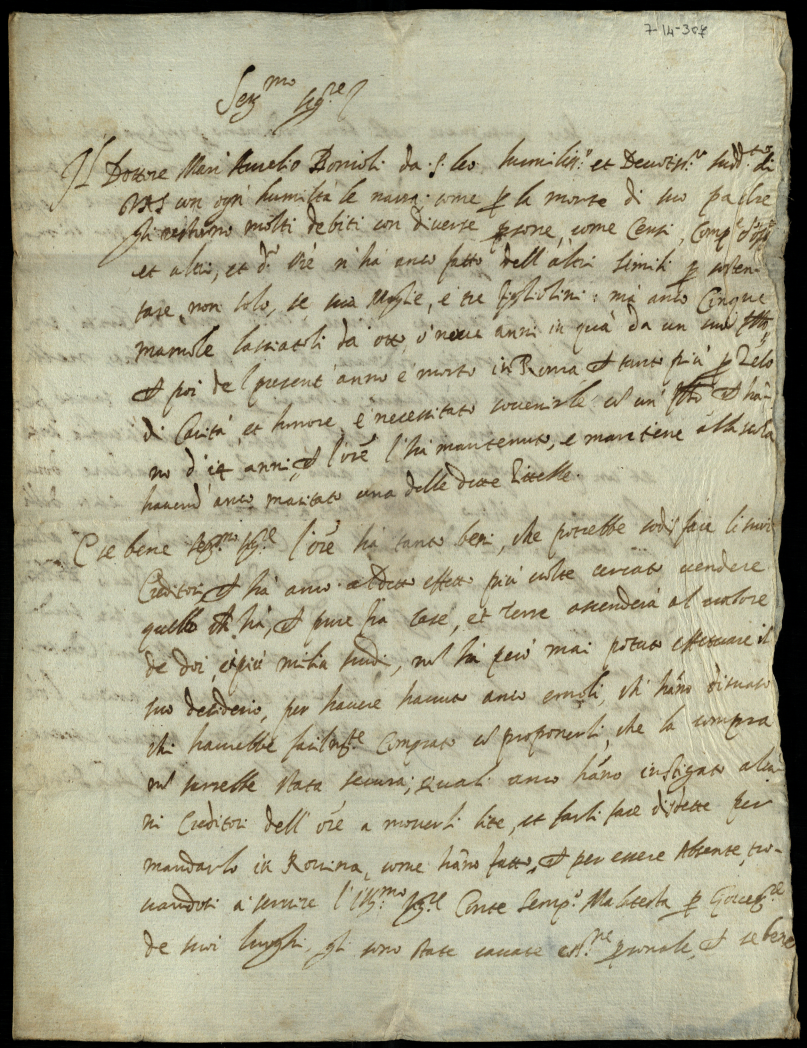 7-14-307
Ser.mo Sig.re
Il Dottore Marc' Aurelio Bonioli da S. Leo humiliss.o et Devotiss.o sudd.to di
VAS con ogni humiltà le narra come p la morte di suo padre
gli restorno molti debiti con diverse psone, come Censi,
et altri, et d. che n'ha anco fatto dell'altri simili p susten-
tare, non solo, se sua Moglie, e tre figliolini: mà anco Cinque
mamole lassiatoli da otto, ò nove anni in quà da un suo frãllo
et poi del present' anno è morto in Roma et tanto più p Zelo
di Carità, et honore, è necessitato sovenirle et un' et hãn-
no d'14 anni, et l'ore l'hà mantenuto, e mantiene alla scola
havend' anco maritato una delle dette Zittelle.
E se bene Ser.mo Sig.re l'ore hà tanto beni, che potrebbe sodisfare li suoi
Creditori et hà anco a detto effetto più volte cercato vendere
quello ch' hà, et pure hà Case, et Terre ascenderà al valore
de doi, e più milia scudi, nõ hà però mai potuto effetuare il
suo desiderio, per havere havuto anco emoli, ch' hãno disuaso
chi havrebbe facilm.te Comprato et proponerli, che la compra
nõ sarrebbe stata secura; quali anco hãno instigato alcu-
ni Creditori dell' ore a moverli lite, et farli fare disdette per
mandarlo in Rovina, come hãno fatto, et per essere Absente, tro-
vandosi a servire l'Ill.mo Sig.re Conte Semp.o Malatesta p Gover.re
de suoi luoghi, gli sono state cavate ess.ne psonale, et se bene